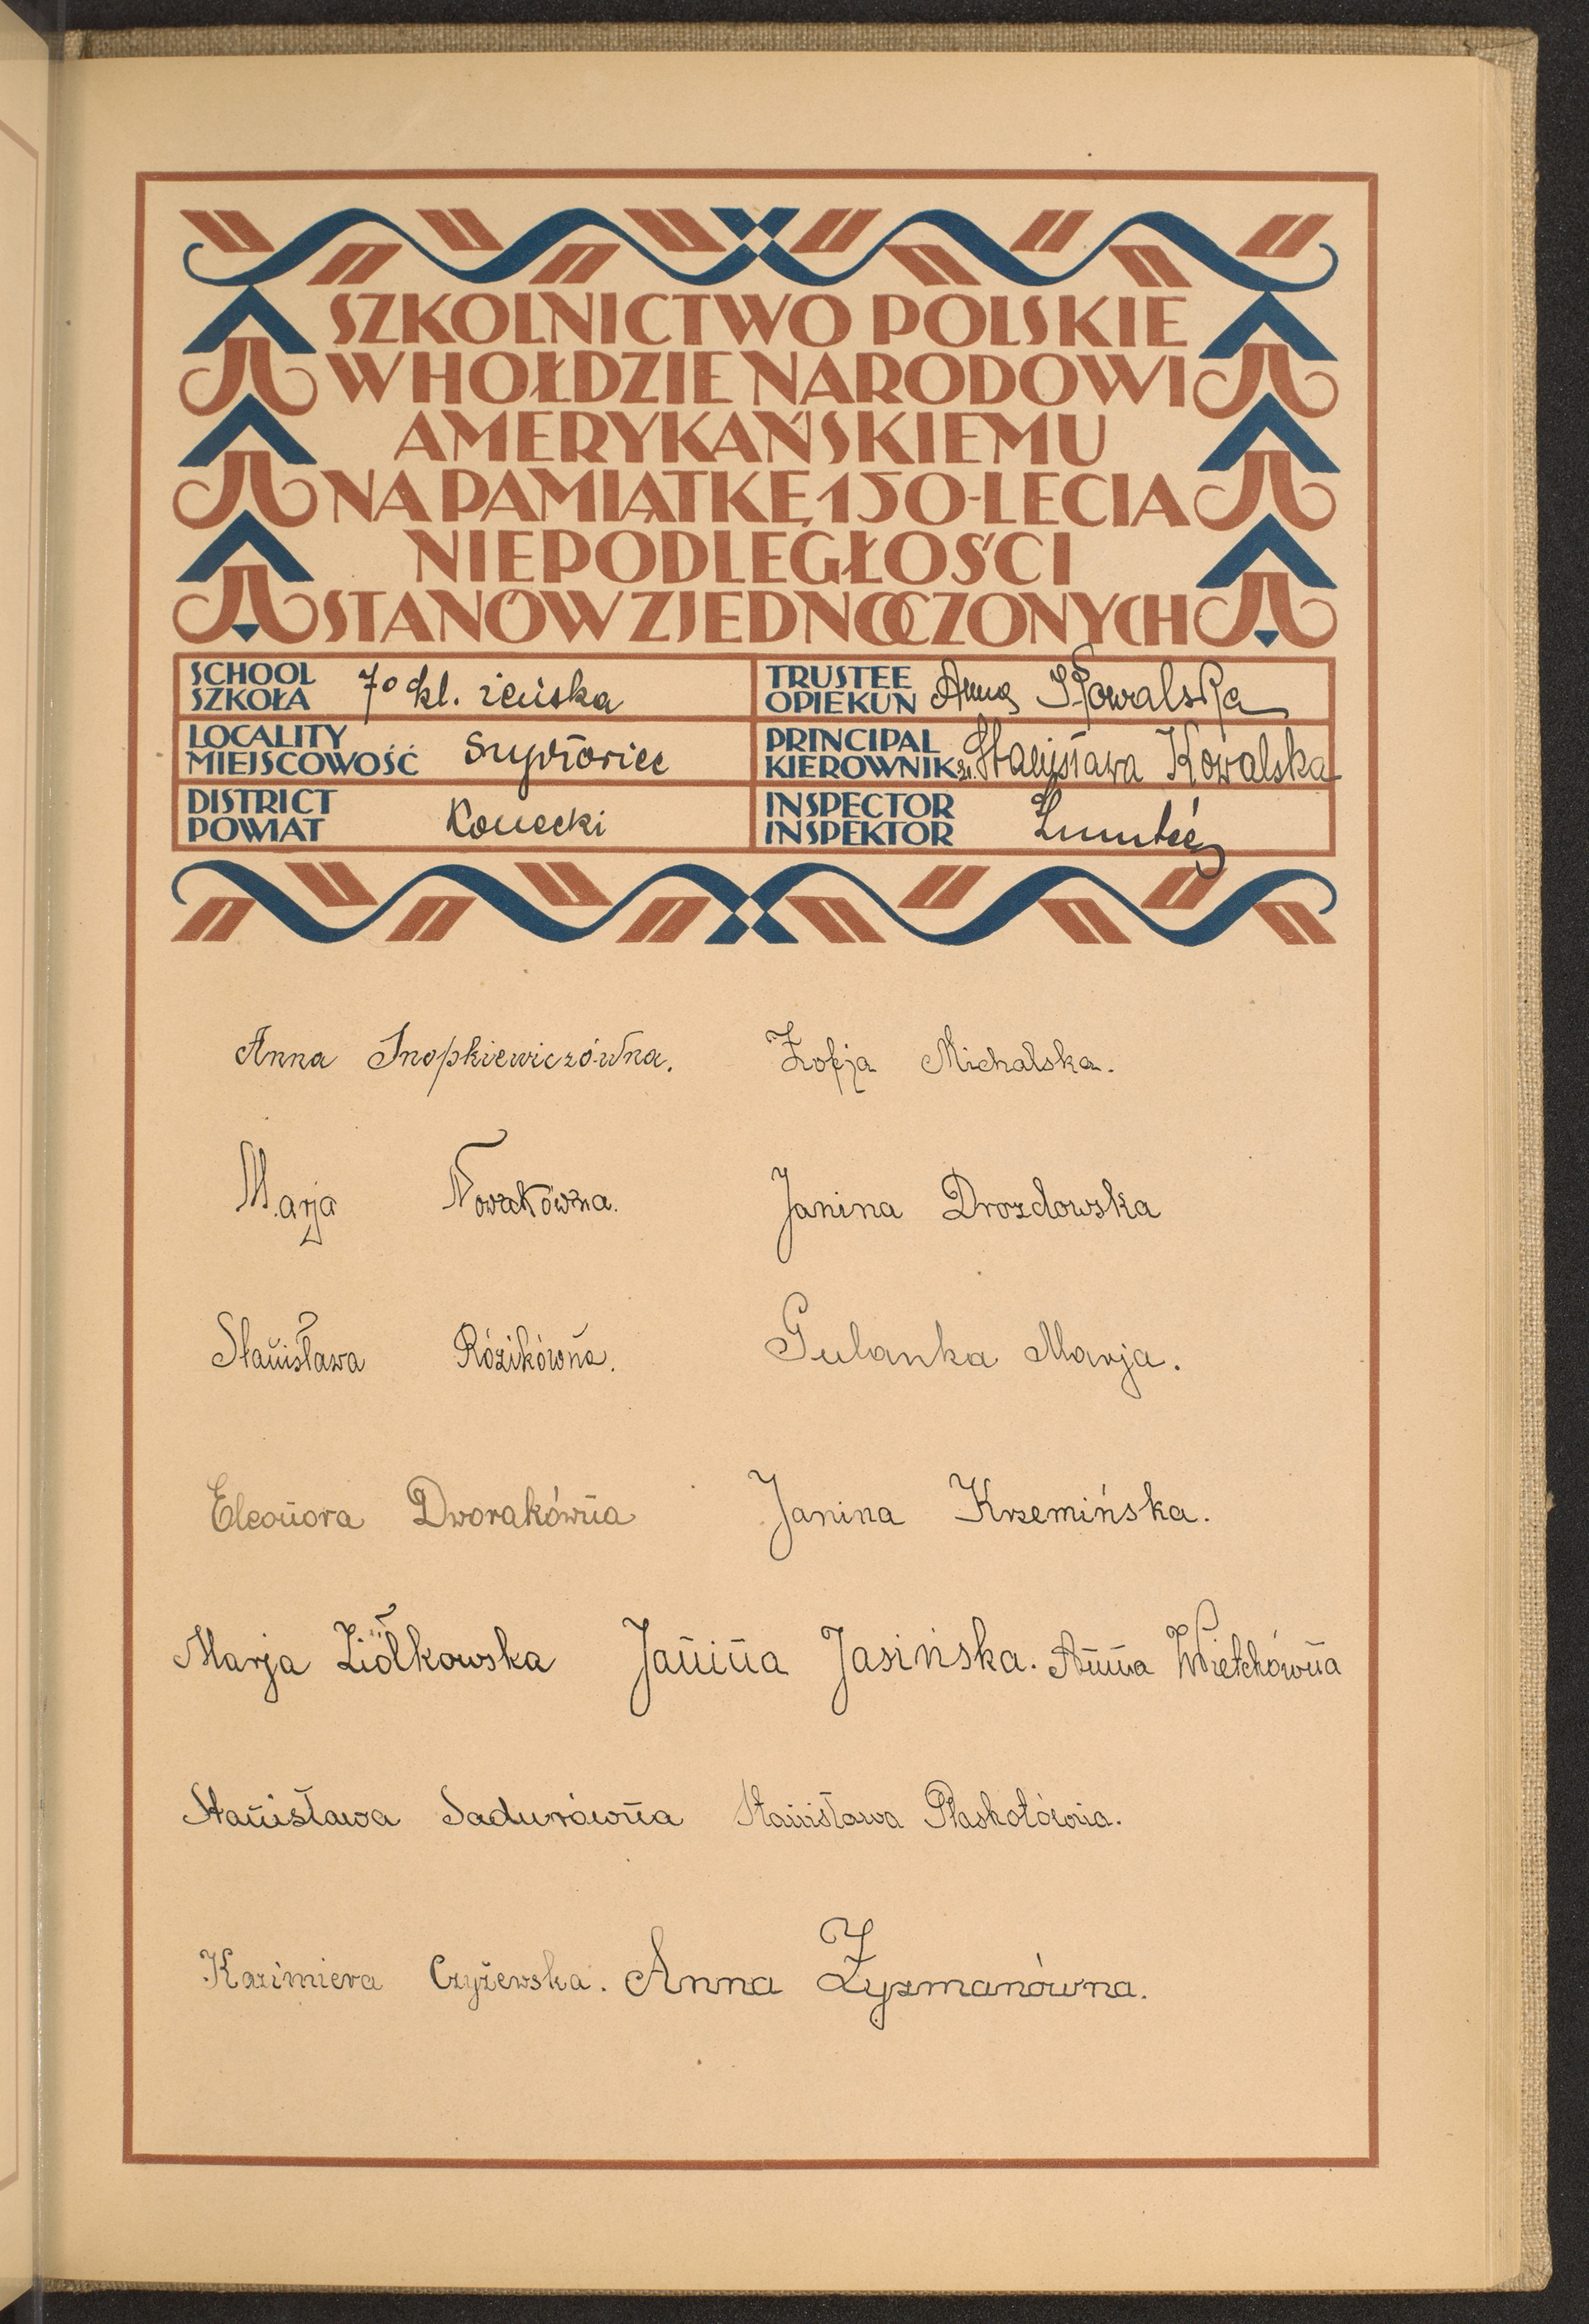 SZKOLNICTWO POLSKIE
W HOŁDZIE NARODOWI
AMERYKAŃSKIEMU
NA PAMIĄTKĘ 150-LECIA
NIEPODLEGŁOŚCI
STANÓW ZJEDNOCZONYCH
SCHOOL
SZKOŁA 7o kl. żeńska
TRUSTEE
OPIEKUN Anna Kowalska
LOCALITY
MIEJSCOWOŚĆ Szydłowiec
PRINCIPAL
KIEROWNIK Stanisława Kowalska
DISTRICT
POWIAT Konecki
INSPECTOR
INSPEKTOR
Anna Snopkiewiczówna. Zofja Michalska.
Marja Nowakówna. Janina Drozdowska
Stanisława Rózikówna. Gulanka Marja.
Eleonora Dworakówna Janina Krzemińska.
Marja Ziółkowska Janina Jasińska. Anna Wietchówna
Stanisława Sadurówna Stanisława Płaskotówna.
Kazimiera Czyżewska. Anna Zyzmanówna.